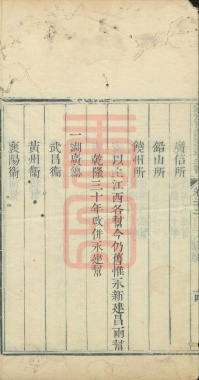 廣信所
鉛山所
饒州所
以上江西各幫今仍舊惟永新建昌兩幫
乾隆三十年改併永建幫
一湖廣總
武昌衛
黃州衛
襄陽衛